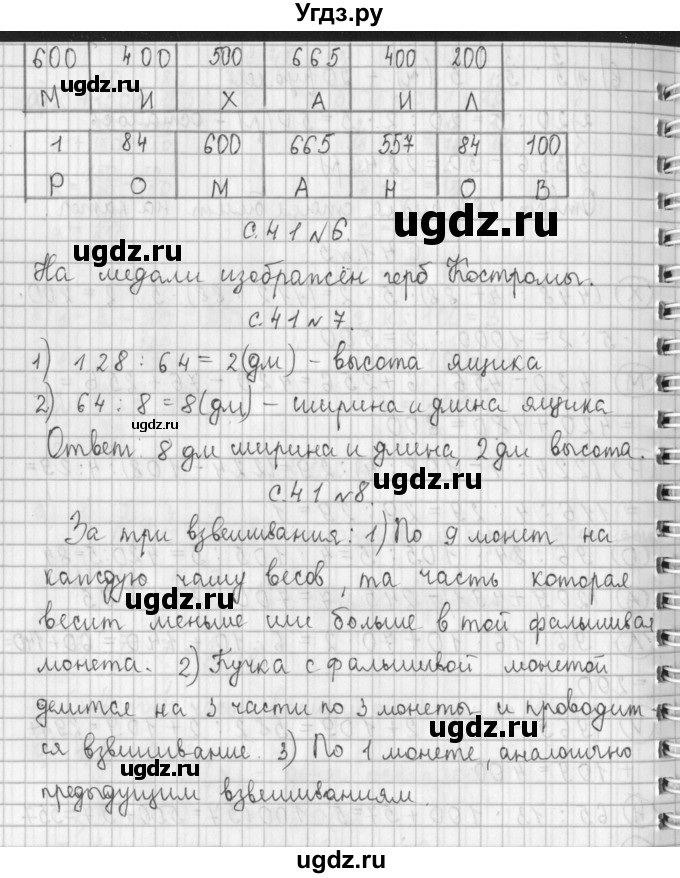 Угдз.ру
600 400 500 665 400 200
М И Х А И Л
ugdz.ru
ugdz.ru
1 84 600 665 557 84 100
Р О М А Н О В
ugdz.ru
ugdz.ru
С.41 №6.
На медали изображён герб Костромы.
С.41 №7.
1) 128 : 64 = 2(дм) – высота ящика
2) 64 : 8 = 8(дм) – ширина и длина ящика
ugdz.ru
Ответ 8 дм ширина и длина, 2 дм высота.
ugdz.ru
С.41 №8.
За три взвешивания: 1) По 9 монет на
каждую чашу весов, та часть которая
ugdz.ru
весит меньше или больше в той фальшивая
монета. 2) Кучка с фальшивой монетой
делится на 3 части по 3 монеты и проводит-
ugdz.ru
ся взвешивание. 3) По 1 монете, аналогично
ugdz.ru
предыдущим взвешиваниям.
ugdz.ru